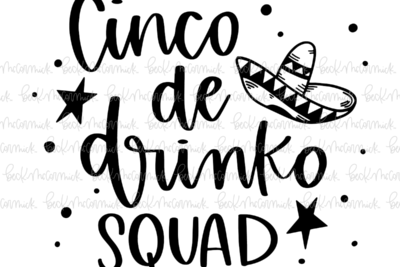 Cinco
de
drinko
SQUAD